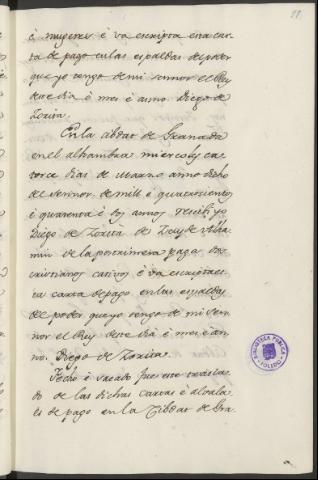 é mugeres é va escripta esta car
ta de pago en las espaldas del poder
que yo tengo de mi sennor el Rey
deste dia é mes é anno. Diego de
Zorita.
En la cibdat de Granada
en el alhambra miercoles ca
torce dias de Marzo anno dicho
del Sennor de mill é quatrocientos
é quarenta é dos annos rescibi yo
Diego de Zorita de
min de la postrimera paga dos
cristianos cativos é va escripta es
ta carta de pago en las espaldas
del poder que yo tengo de mi sen
nor el Rey deste dia é mes é an
no. Diego de Zorita.
Fecho é sacado fue este trasla
do de las dichas cartas é alvala
es de pago en la Cibdat de Gra
BIBLIOTECA PUBLICA
TOLEDO